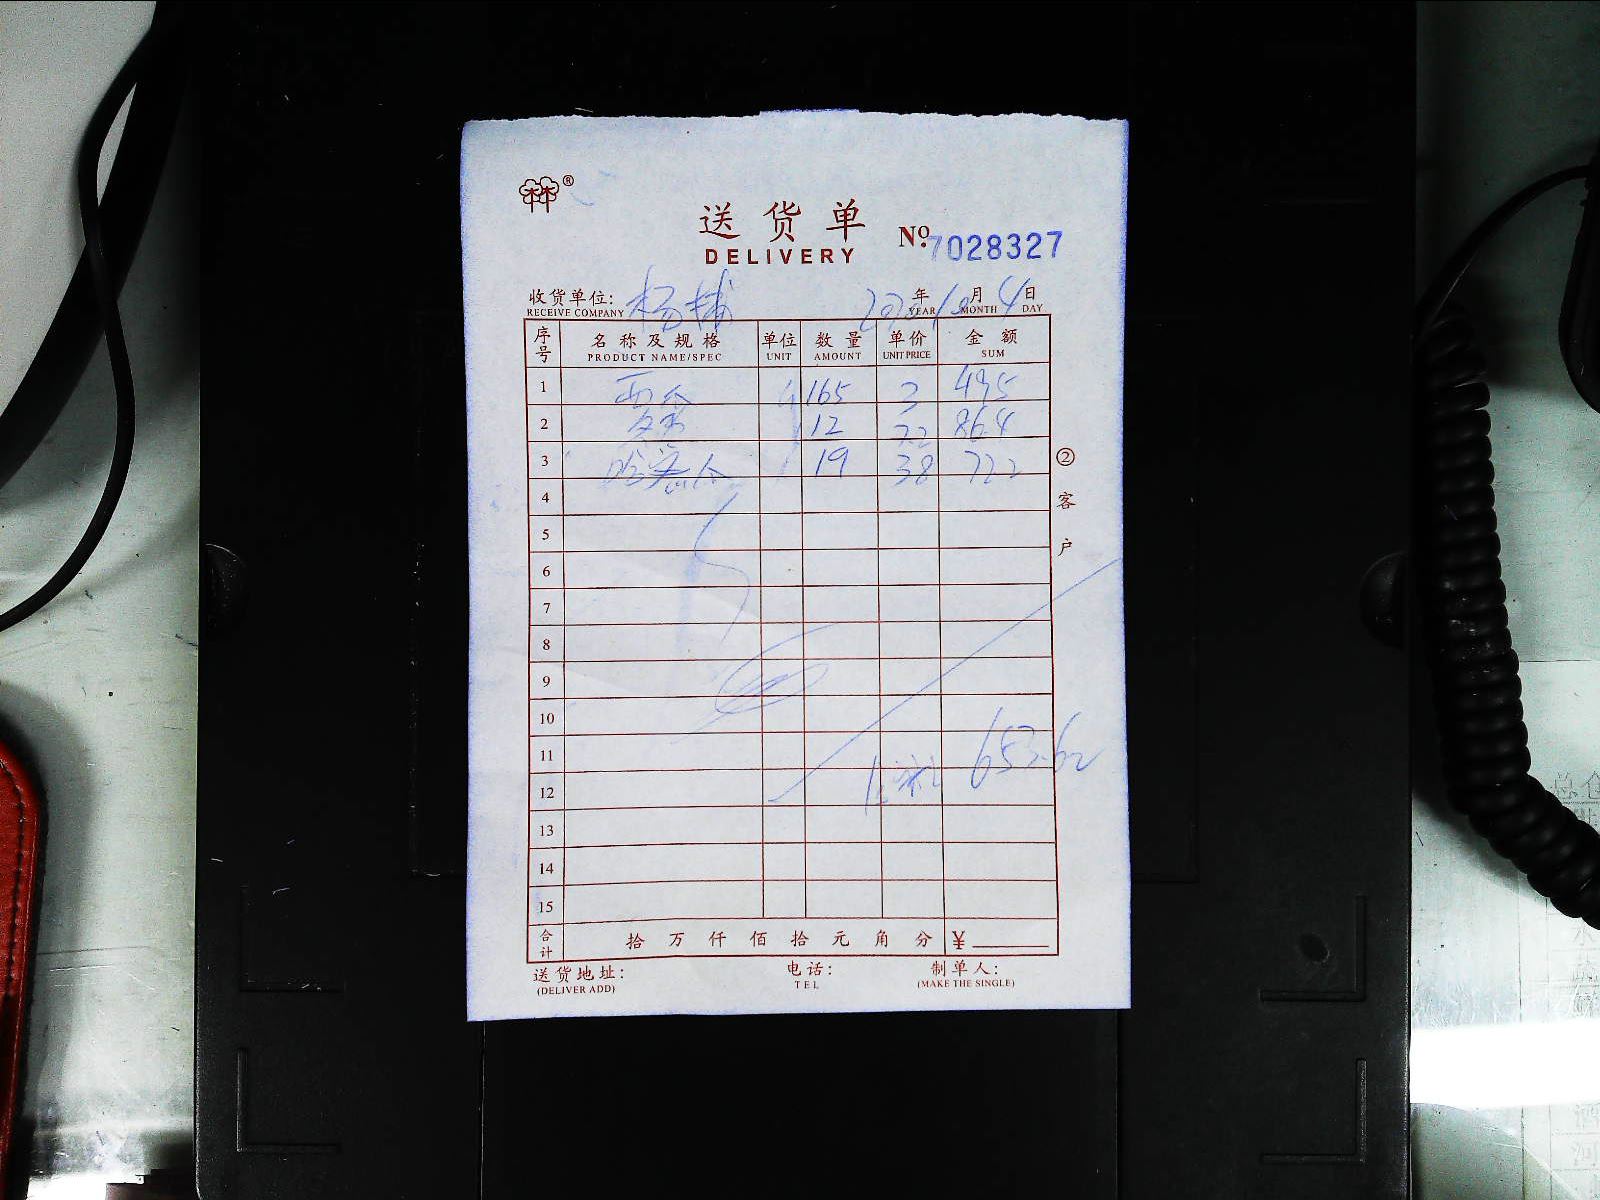 ®
送货单
DELIVERY
№ 7028327
收货单位: 杨埔 2020年10月4日
RECEIVE COMPANY YEAR MONTH DAY
序号 名称及规格 单位 数量 单价 金额
PRODUCT NAME/SPEC UNIT AMOUNT UNIT PRICE SUM
1 西瓜 165 3 495
2 12 7.2 86.4
3 哈密瓜 19 3.8 72.2
4
5
6
7
8
9
10
11
12
653.60
13
14
15
②客户
合计 拾 万 仟 佰 拾 元 角 分 ¥
送货地址: 电话: 制单人:
(DELIVER ADD) TEL (MAKE THE SINGLE)